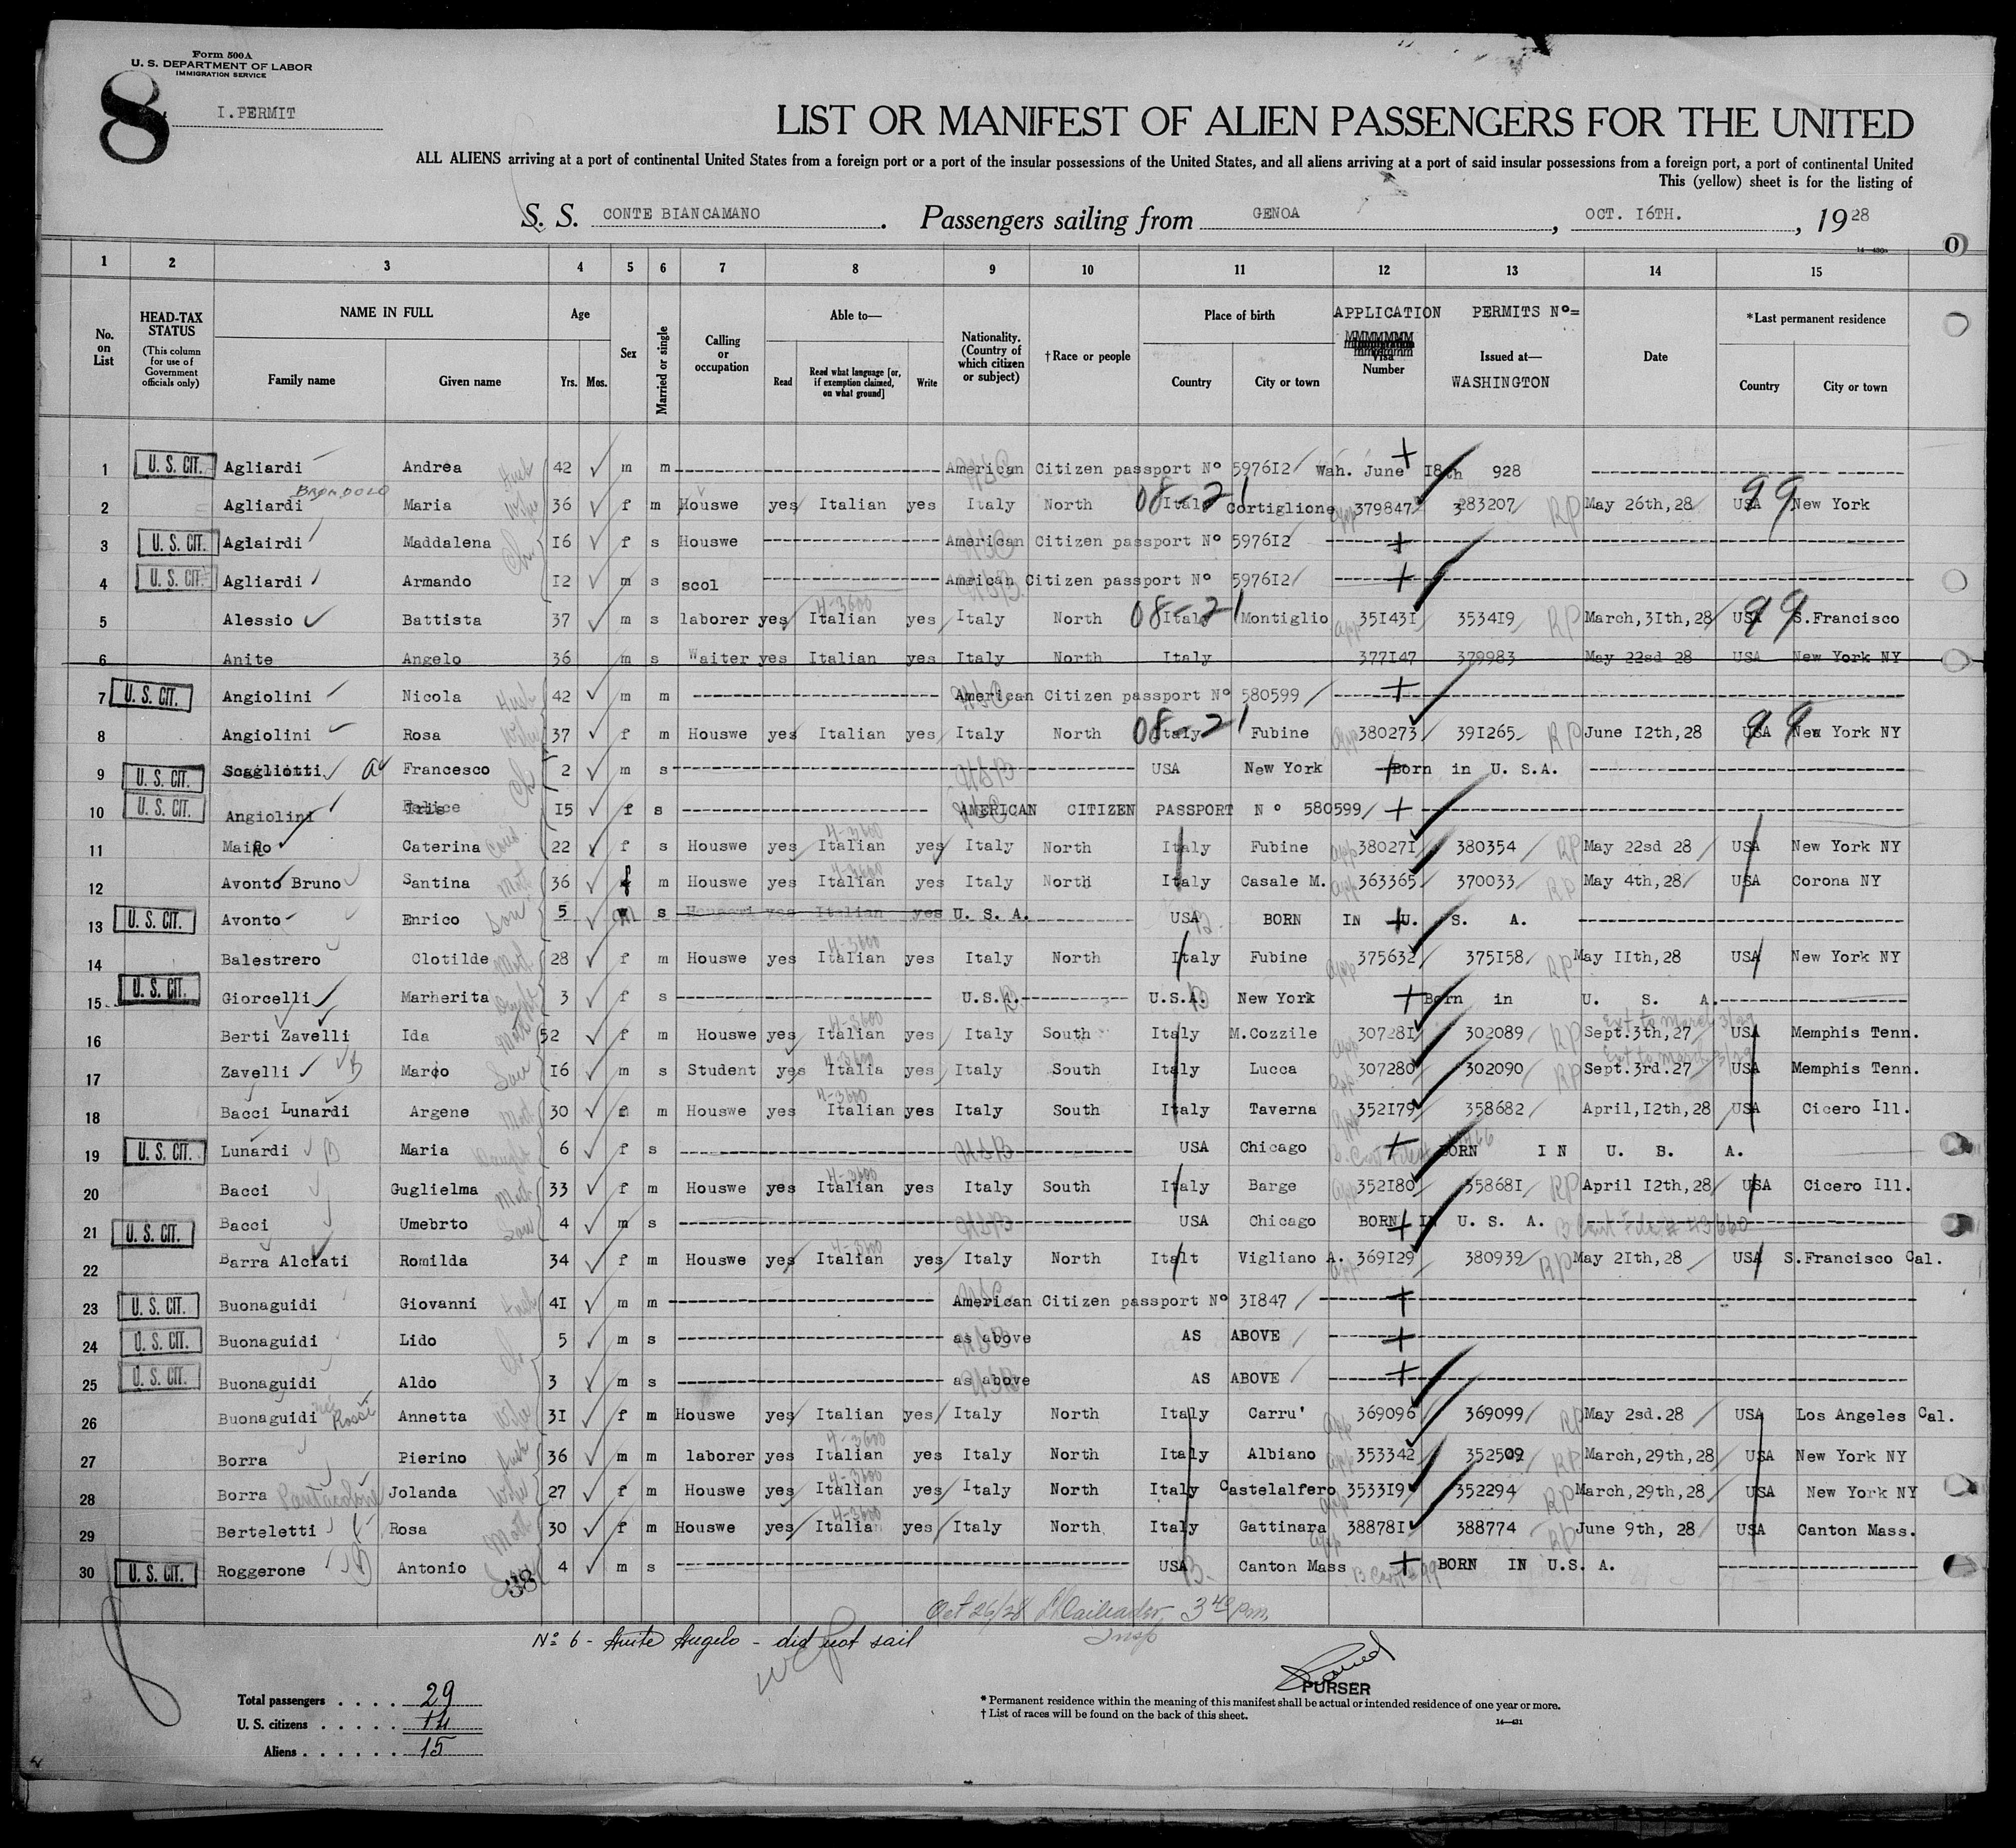 Form 500A
U. S. DEPARTMENT OF LABOR
IMMIGRATION SERVICE
8
I.PERMIT
LIST OR MANIFEST OF ALIEN PASSENGERS FOR THE UNITED
ALL ALIENS arriving at a port of continental United States from a foreign port or a port of the insular possessions of the United States, and all aliens arriving at a port of said insular possessions from a foreign port, a port of continental United
This (yellow) sheet is for the listing of
S. S. CONTE BIANCAMANO. Passengers sailing from GENOA, OCT. I6TH., 1928
14—430a
1 2 3 4 5 6 7 8 9 10 11 12 13 14 15
No. on List
HEAD-TAX STATUS (This column for use of Government officials only)
NAME IN FULL Family name Given name
Age Yrs. Mos.
Sex
Married or single
Calling or occupation
Able to— Read Read what language [or, if exemption claimed, on what ground] Write
Nationality. (Country of which citizen or subject)
†Race or people
Place of birth Country City or town
APPLICATION Visa Number
PERMITS Nº= Issued at— WASHINGTON
Date
*Last permanent residence Country City or town
1 U. S. CIT. Agliardi Andrea Husb 42 m m American Citizen passport Nº 5976I2 Wah. June I8th 928
2 Agliardi BRONDOLO Maria Wife 36 f m Houswe yes Italian yes Italy North 08-21 Italy Cortiglione app 379847 3283207 RP May 26th,28 USA 99 New York
3 U. S. CIT. Aglairdi Maddalena Ch I6 f s Houswe American Citizen passport Nº 5976I2
4 U. S. CIT. Agliardi Armando I2 m s scol Amrican Citizen passport Nº 5976I2
5 Alessio Battista 37 m s laborer yes 4-3600 Italian yes Italy North 08-21 Italy Montiglio app 35I43I 3534I9 RP March,3Ith,28 USA 99 S.Francisco
6 Anite Angelo 36 m s Waiter yes Italian yes Italy North Italy 377I47 379983 May 22sd 28 USA New York NY
7 U. S. CIT. Angiolini Nicola Husb 42 m m American Citizen passport Nº 580599
8 Angiolini Rosa Wife 37 f m Houswe yes Italian yes Italy North 08-21 Italy Fubine app 380273 39I265 RP June I2th,28 USA 99 New York NY
9 U. S. CIT. Scagliotti Francesco Ch 2 m s USB USA New York Born in U. S.A.
10 U. S. CIT. Angiolini I5 f s AMERICAN CITIZEN PASSPORT N º 580599
11 Mairo Caterina 22 f s Houswe yes 4-3600 Italian yes Italy North Italy Fubine app 38027I 380354 RP May 22sd 28 USA New York NY
12 Avonto Bruno Santina Mot 36 f m Houswe yes 4-3600 Italian yes Italy North Italy Casale M. app 363365 370033 RP May 4th,28 USA Corona NY
13 U. S. CIT. Avonto Enrico Son 5 m s Houswei yes Italian yes U. S. A. USA BORN IN U. S. A.
14 Balestrero Clotilde Mot 28 f m Houswe yes 4-3600 Italian yes Italy North Italy Fubine app 375632 375I58 RP May IIth,28 USA New York NY
15 U. S. CIT. Giorcelli Marherita Daught 3 f s U.S.A. U.S.A. New York Born in U. S. A.
16 Berti Zavelli Ida Moth 52 f m Houswe yes 4-3600 Italian yes Italy South Italy M.Cozzile app 30728I 302089 RP Sept.3th,27 Ext to March 3/29 USA Memphis Tenn.
17 Zavelli B Marco Son I6 m s Student yes 4-3600 Italia yes Italy South Italy Lucca app 307280 302090 RP Sept.3rd.27 Ext to March 3/29 USA Memphis Tenn.
18 Bacci Lunardi Argene Mot 30 f m Houswe yes 4-3600 Italian yes Italy South Italy Taverna app 352I79 358682 April,I2th,28 USA Cicero Ill.
19 U. S. CIT. Lunardi B Maria Daught 6 f s USB USA Chicago BORN IN U. B. A.
20 Bacci Guglielma Mot 33 f m Houswe yes 4-3600 Italian yes Italy South Italy Barge app 352I80 35868I RP April I2th,28 USA Cicero Ill.
21 U. S. CIT. Bacci Umebrto Son 4 m s USB USA Chicago BORN IN U. S. A. B Cert File # 43660
22 Barra Alciati Romilda 34 f m Houswe yes 4-3600 Italian yes Italy North Italt Vigliano A. app 369I29 380939 RP May 2Ith,28 USA S.Francisco Cal.
23 U. S. CIT. Buonaguidi Giovanni Husb 4I m m American Citizen passport Nº 3I847
24 U. S. CIT. Buonaguidi Lido Ch 5 m s as above AS ABOVE
25 U. S. CIT. Buonaguidi Aldo 3 m s as above AS ABOVE
26 Buonaguidi nee Rossi Annetta Wife 3I f m Houswe yes Italian yes Italy North Italy Carru' app 369096 369099 RP May 2sd.28 USA Los Angeles Cal.
27 Borra Pierino Husb 36 m m laborer yes 4-3600 Italian yes Italy North Italy Albiano app 353342 352509 RP March,29th,28 USA New York NY
28 Borra Jolanda Wife 27 f m Houswe yes 4-3600 Italian yes Italy North Italy Castelalfero app 3533I9 352294 RP March,29th,28 USA New York NY
29 Berteletti Rosa Moth 30 f m Houswe yes 4-3600 Italian yes Italy North Italy Gattinara app 38878I 388774 RP June 9th, 28 USA Canton Mass.
30 U. S. CIT. Roggerone Antonio 4 m s USA B. Canton Mass BORN IN U.S. A.
38
Oct 26/28 3 40 P.m.
Insp
Nº 6 - Anite Angelo - did not sail
PURSER
Total passengers . . . . 29
U. S. citizens . . . . . 14
Aliens . . . . . . 15
* Permanent residence within the meaning of this manifest shall be actual or intended residence of one year or more.
† List of races will be found on the back of this sheet.
14—431